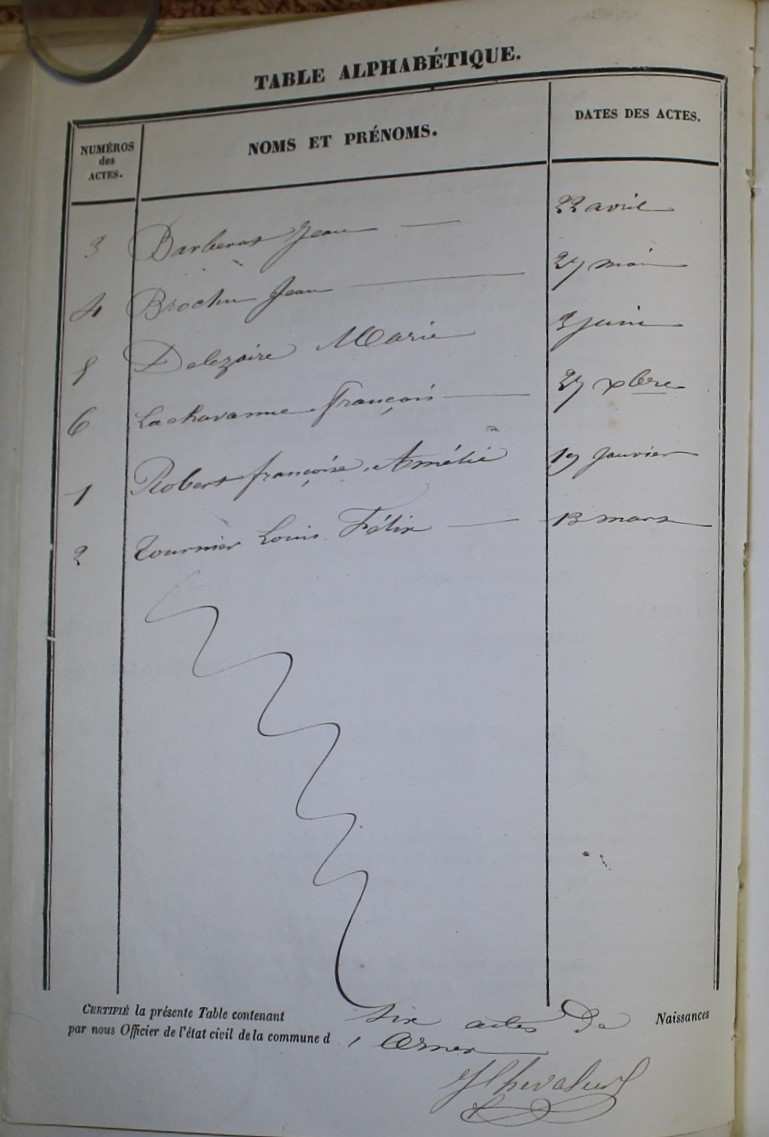 TABLE ALPHABÉTIQUE.
NUMÉROS des ACTES. NOMS ET PRÉNOMS. DATES DES ACTES.
3 Barberat Jean 22 avril
4 Brochu Jean 27 mai
5 Delezaire Marie 3 juin
6 Lachavanne François 27 xbre
1 Robert françoise Amélie 19 Janvier
2 Tournier Louis Félix 13 mars
CERTIFIÉ la présente Table contenant six actes de Naissances
par nous Officier de l'état civil de la commune d